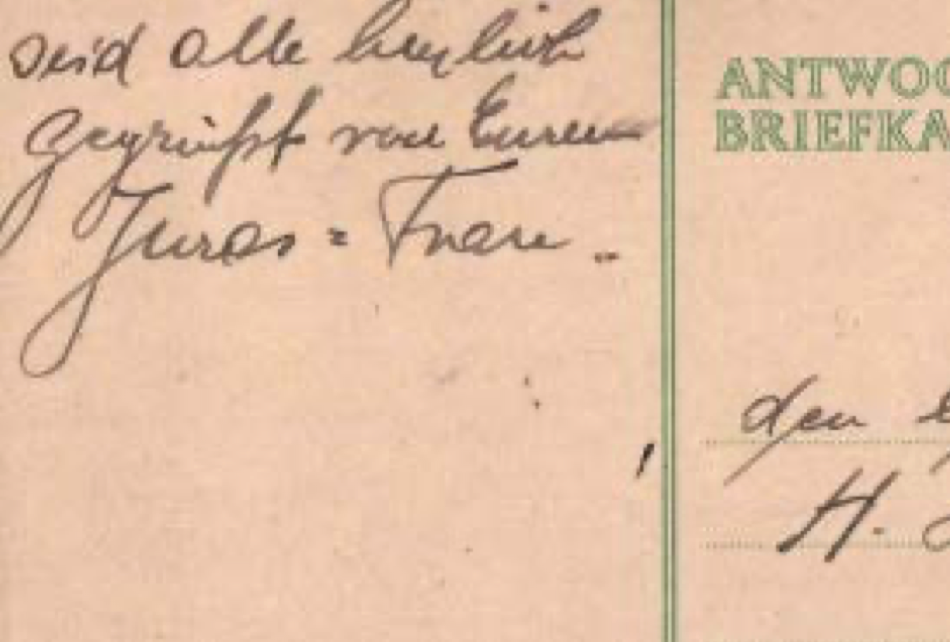 seid alle herzlich
gegrüßt von Euren
ANTWO
BRIEFKA
den
H.